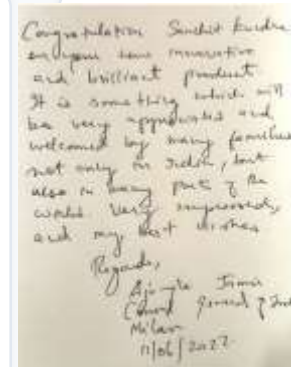 Congratulation Sanchit
on your new innovative
and brilliant product
It is something which will
be very appreciated and
welcomed by many families
not only in India, but
also in many part of the
world. Very impressed,
and my best wishes
Regards,
General of
Milan
11/06/2022